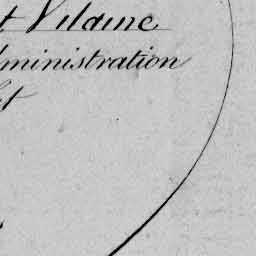 t Vilaine
dministration
et